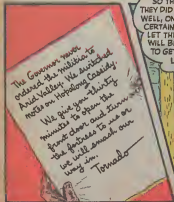 SO TH
THEY DID
WELL, ON
CERTAIN
LET TH
WILL B
TO GE
The Governor never
ordered the militia to
Arid Valley. We switched
notes on Hopalong Cassidy.
We give you thirty
minutes to open the
front door and turn
the fortress to us or
we will smash our
way in.
Tornado